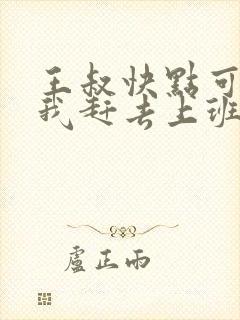 王叔快點可
我赶去上班
盧正雨